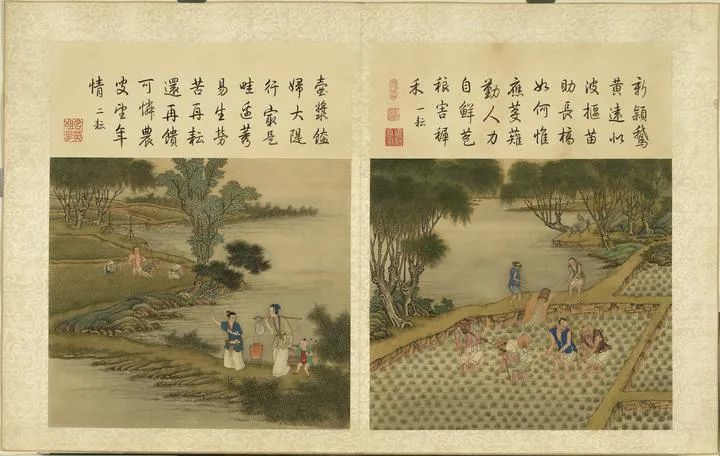 新穎鵞
黃遠似
波揠苗
助長槁
如何惟
應芟薙
勤人力
自鮮苞
稂害稺
禾 一耘
壺漿饁
婦大隄
行㝡是
畦邊莠
易生勞
苦再耘
還再饋
可憐農
叜望年
情 二耘